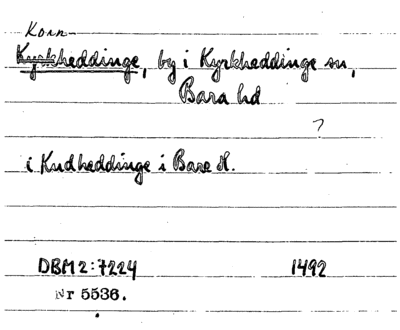 Korn-
Kyrkheddinge, by i Kyrkheddinge sn,
Bara hd
?
i Kndheddinge i Bare H.
DBM 2:7224 1492
Nr 5536.